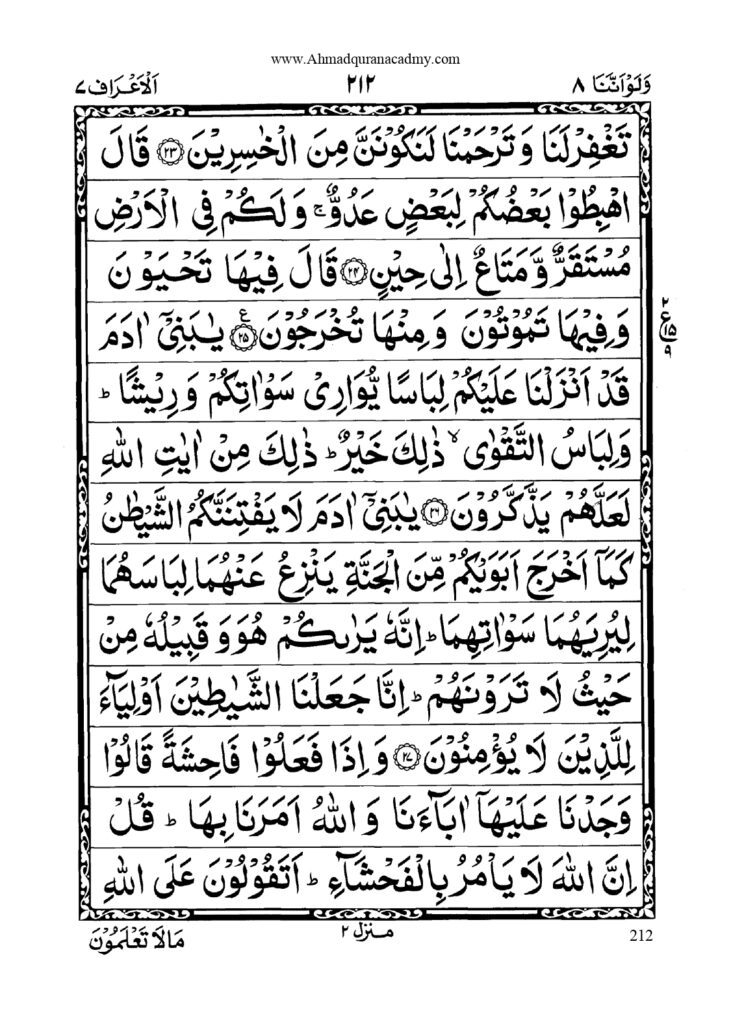 www.Ahmadquranacadmy.com
وَلَوۡاَنَّنَا ٨ ٢١٢ اَلۡاَعۡرَاف ٧
تَغۡفِرۡلَنَا وَ تَرۡحَمۡنَا لَنَكُوۡنَنَّ مِنَ الۡخٰسِرِيۡنَ ﴿٢٣﴾ قَالَ
اهۡبِطُوۡا بَعۡضُكُمۡ لِبَعۡضٍ عَدُوٌّ ۚ وَ لَكُمۡ فِى الۡاَرۡضِ
مُسۡتَقَرٌّ وَّ مَتَاعٌ اِلٰى حِيۡنٍ ﴿٢٤﴾ قَالَ فِيۡهَا تَحۡيَوۡنَ
وَ فِيۡهَا تَمُوۡتُوۡنَ وَ مِنۡهَا تُخۡرَجُوۡنَ ﴿٢٥﴾ ع يٰبَنِىۡۤ اٰدَمَ
٢ ع ١٥ ٩
قَدۡ اَنۡزَلۡنَا عَلَيۡكُمۡ لِبَاسًا يُّوَارِىۡ سَوۡاٰتِكُمۡ وَ رِيۡشًا ؕ
وَ لِبَاسُ التَّقۡوٰى ۙ ذٰلِكَ خَيۡرٌ ؕ ذٰلِكَ مِنۡ اٰيٰتِ اللّٰهِ
لَعَلَّهُمۡ يَذَّكَّرُوۡنَ ﴿٢٦﴾ يٰبَنِىۡۤ اٰدَمَ لَا يَفۡتِنَنَّكُمُ الشَّيۡطٰنُ
كَمَاۤ اَخۡرَجَ اَبَوَيۡكُمۡ مِّنَ الۡجَنَّةِ يَنۡزِعُ عَنۡهُمَا لِبَاسَهُمَا
لِيُرِيَهُمَا سَوۡاٰتِهِمَا ؕ اِنَّهٗ يَرٰىكُمۡ هُوَ وَ قَبِيۡلُهٗ مِنۡ
حَيۡثُ لَا تَرَوۡنَهُمۡ ؕ اِنَّا جَعَلۡنَا الشَّيٰطِيۡنَ اَوۡلِيَآءَ
لِلَّذِيۡنَ لَا يُؤۡمِنُوۡنَ ﴿٢٧﴾ وَ اِذَا فَعَلُوۡا فَاحِشَةً قَالُوۡا
وَجَدۡنَا عَلَيۡهَاۤ اٰبَآءَنَا وَ اللّٰهُ اَمَرَنَا بِهَا ؕ قُلۡ
اِنَّ اللّٰهَ لَا يَاۡمُرُ بِالۡفَحۡشَآءِ ؕ اَتَقُوۡلُوۡنَ عَلَى اللّٰهِ
مَا لَا تَعۡلَمُوۡنَ منزل ٢ 212